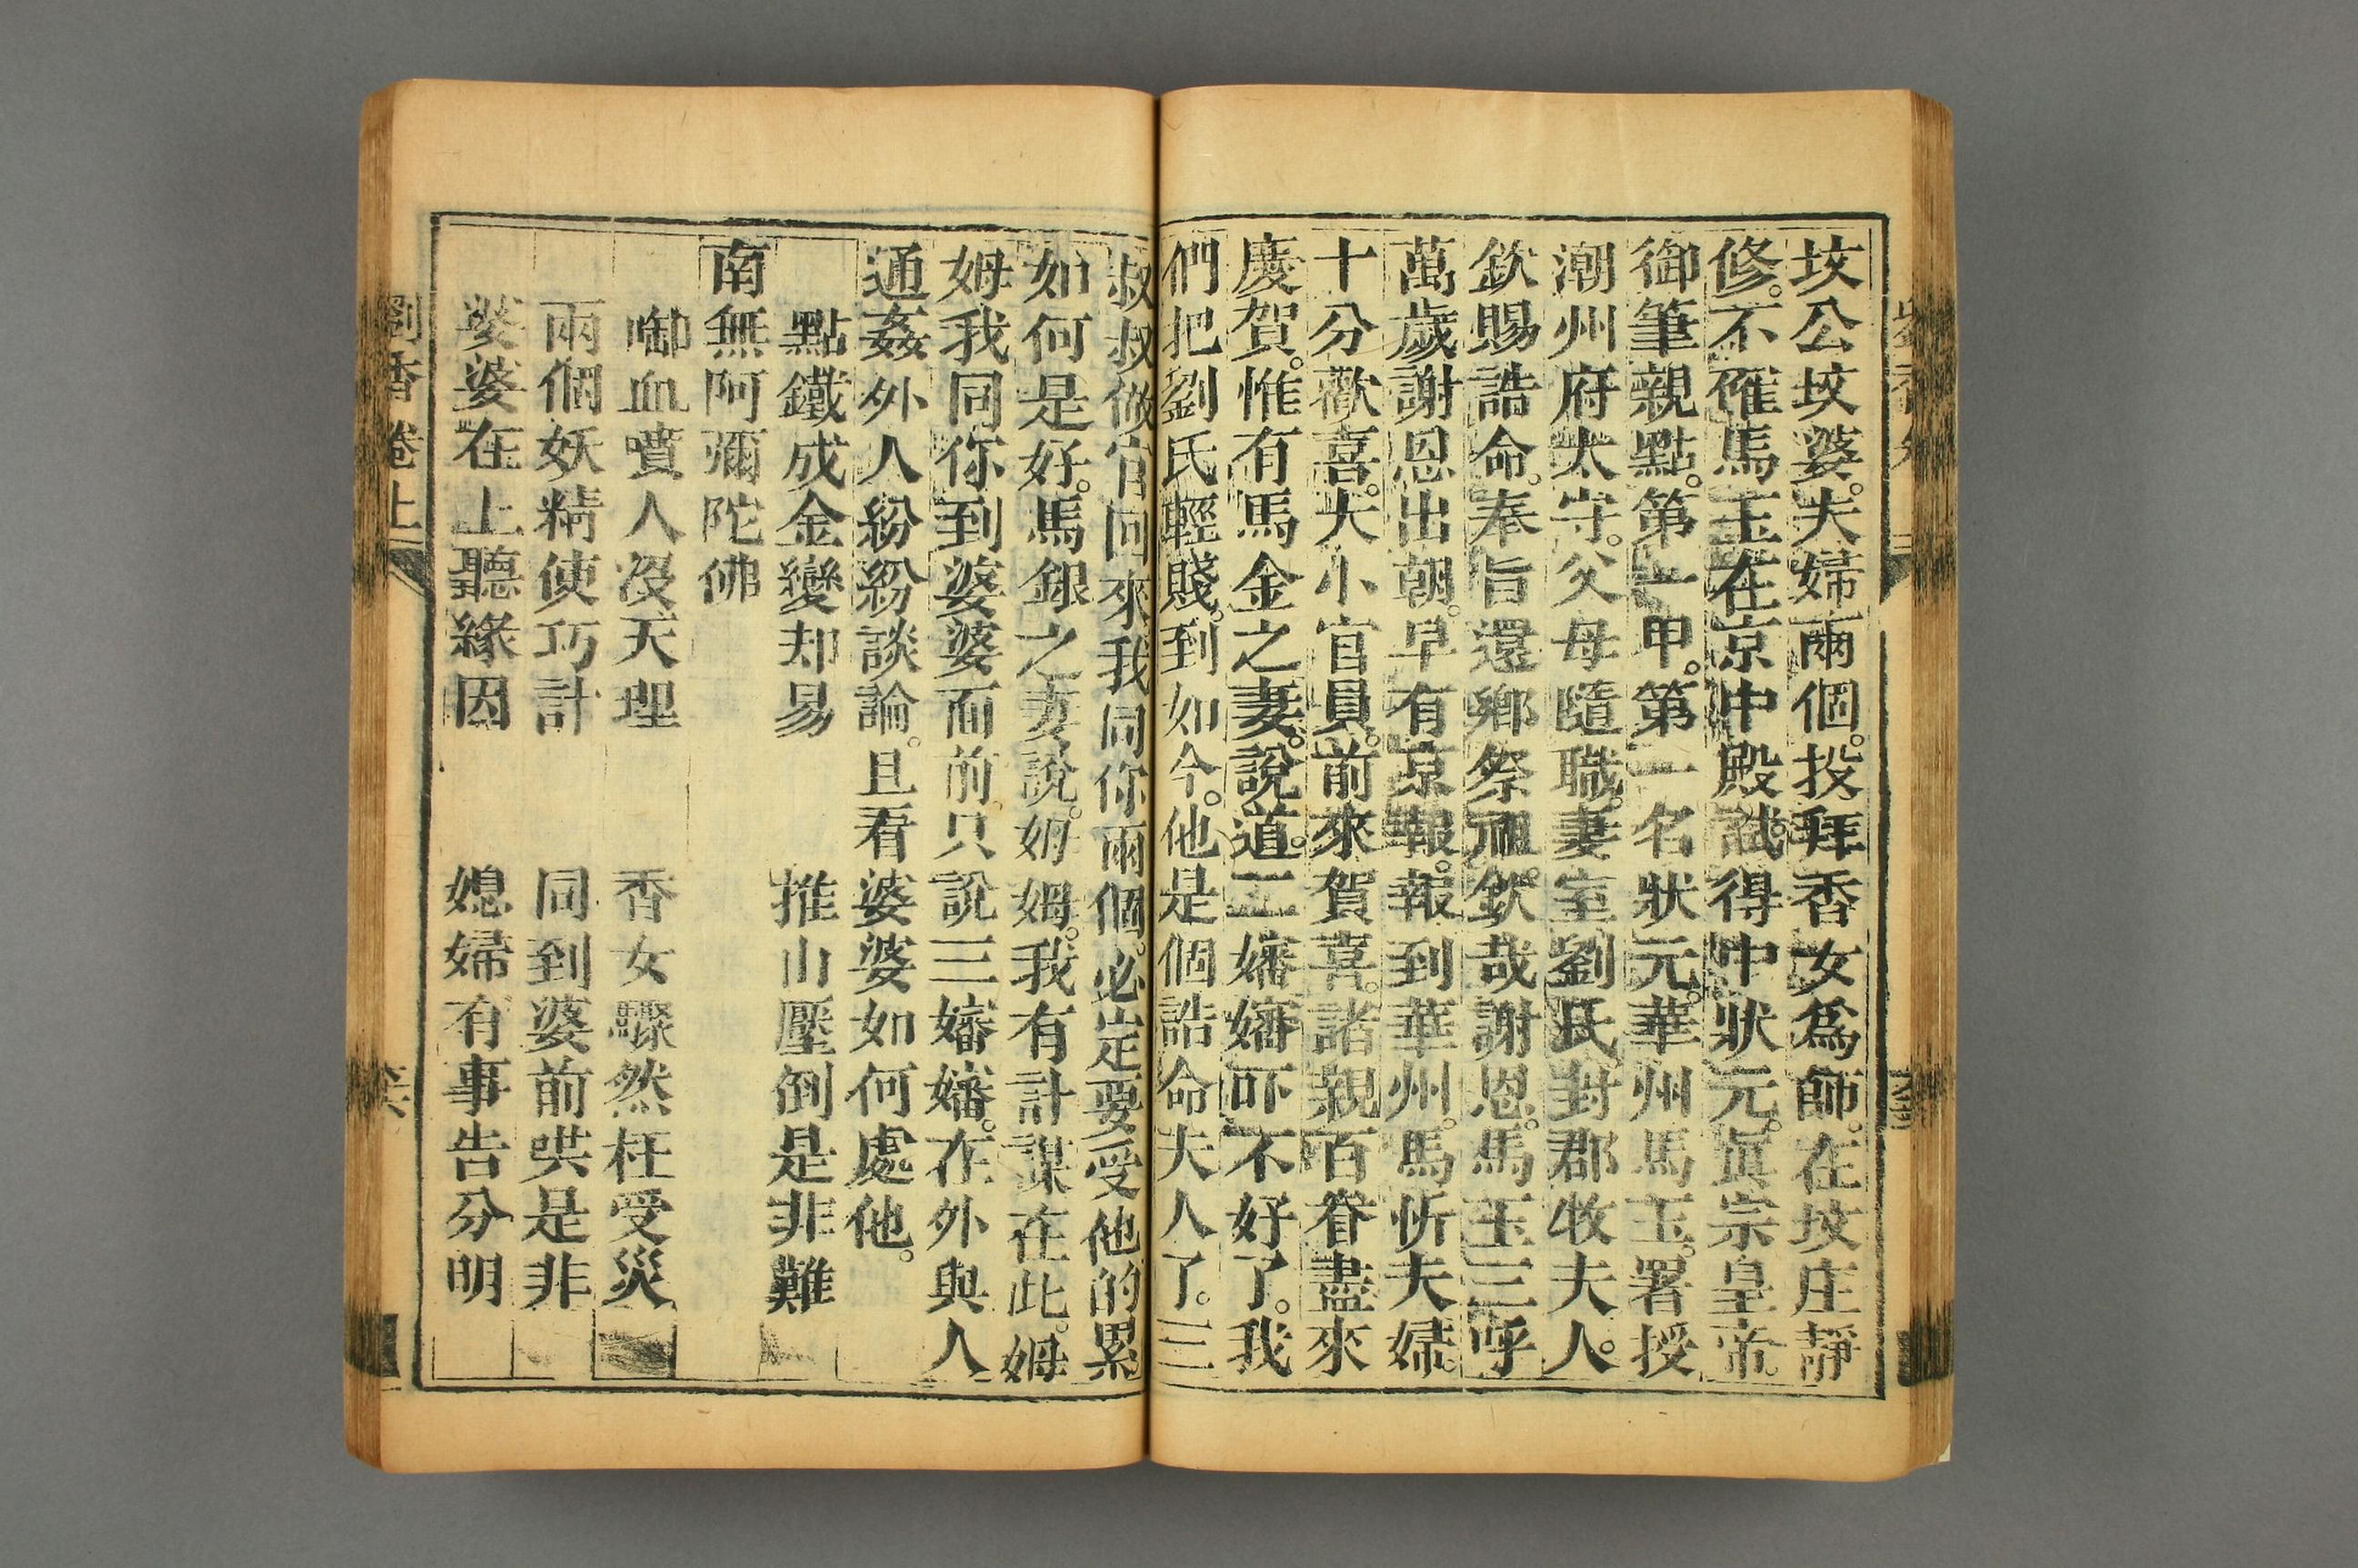 坟公坟婆。夫婦兩個。投拜香女爲師。在坟庄靜
修。不僱馬玉在京中殿試。得中狀元。眞宗皇帝。
御筆親點。第一甲。第一名狀元。華州馬玉。署授
潮州府太守。父母隨職。妻室劉氏。封郡牧夫人。
欽賜誥命。奉旨還鄉祭祖。欽哉謝恩。馬玉三呼
萬歲謝恩出朝。早有京報。報到華州。馬忻夫婦。
十分歡喜。大小官員。前來賀喜。諸親百眷盡來
慶賀。惟有馬金之妻。說道。二嬸嬸吓不好了。我
們把劉氏輕賤。到如今。他是個誥命夫人了。三
叔叔做官囘來。我同你兩個。必定要受他的累
如何是好。馬銀之妻說。姆姆。我有計謀在此。姆
姆我同你到婆婆面前。只說三嬸嬸。在外與人
通姦。外人紛紛談論。且看婆婆如何處他。
點鐵成金變却易 推山壓倒是非難
南無阿彌陀佛
啣血噴人沒天理 香女驟然枉受災
兩個妖精使巧計 同到婆前哄是非
婆婆在上聽緣因 媳婦有事告分明
劉香卷上